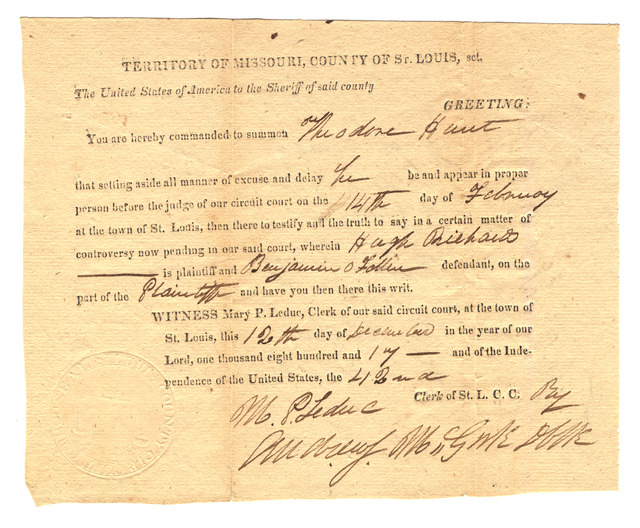 TERRITORY OF MISSOURI, COUNTY OF ST. LOUIS, sct.
The United States of America to the Sheriff of said county
GREETING:
You are hereby commanded to summon Theodore Hunt
that setting aside all manner of excuse and delay he be and appear in proper
person before the judge of our circuit court on the 14th day of February
at the town of St. Louis, then there to testify and the truth to say in a certain matter of
controversy now pending in our said court, wherein Hugh
is plaintiff and Benjamin defendant, on the
part of the Plaintiff and have you then there this writ.
WITNESS Mary P. Leduc, Clerk of our said circuit court, at the town of
St. Louis, this 12th day of December in the year of our
Lord, one thousand eight hundred and 17 — and of the Inde-
pendence of the United States, the 42nd
M. P. Leduc Clerk of St. L. C. C. By